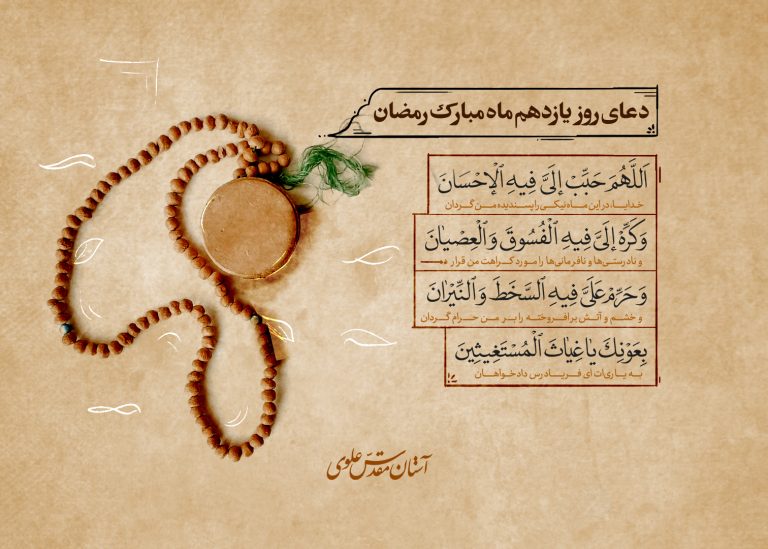 دعای روز یازدهم ماه مبارک رمضان
اَللَّهُمَّ حَبِّبْ إِلَيَّ فِيهِ ٱلْإِحْسَانَ
خدایا، در این ماه نیکی را پسندیده من گردان
وَكَرِّهْ إِلَيَّ فِيهِ ٱلْفُسُوقَ وَٱلْعِصْيَانَ
و نادرستی‌ها و نافرمانی‌ها را مورد کراهت من قرار ده
وَحَرِّمْ عَلَيَّ فِيهِ ٱلسَّخَطَ وَٱلنِّيْرَانَ
و خشم و آتش برافروخته را بر من حرام گردان
بِعَوْنِكَ يَا غِيَاثَ ٱلْمُسْتَغِيثِينَ
به یاری‌ات ای فریادرس دادخواهان
آستان مقدّس علوی